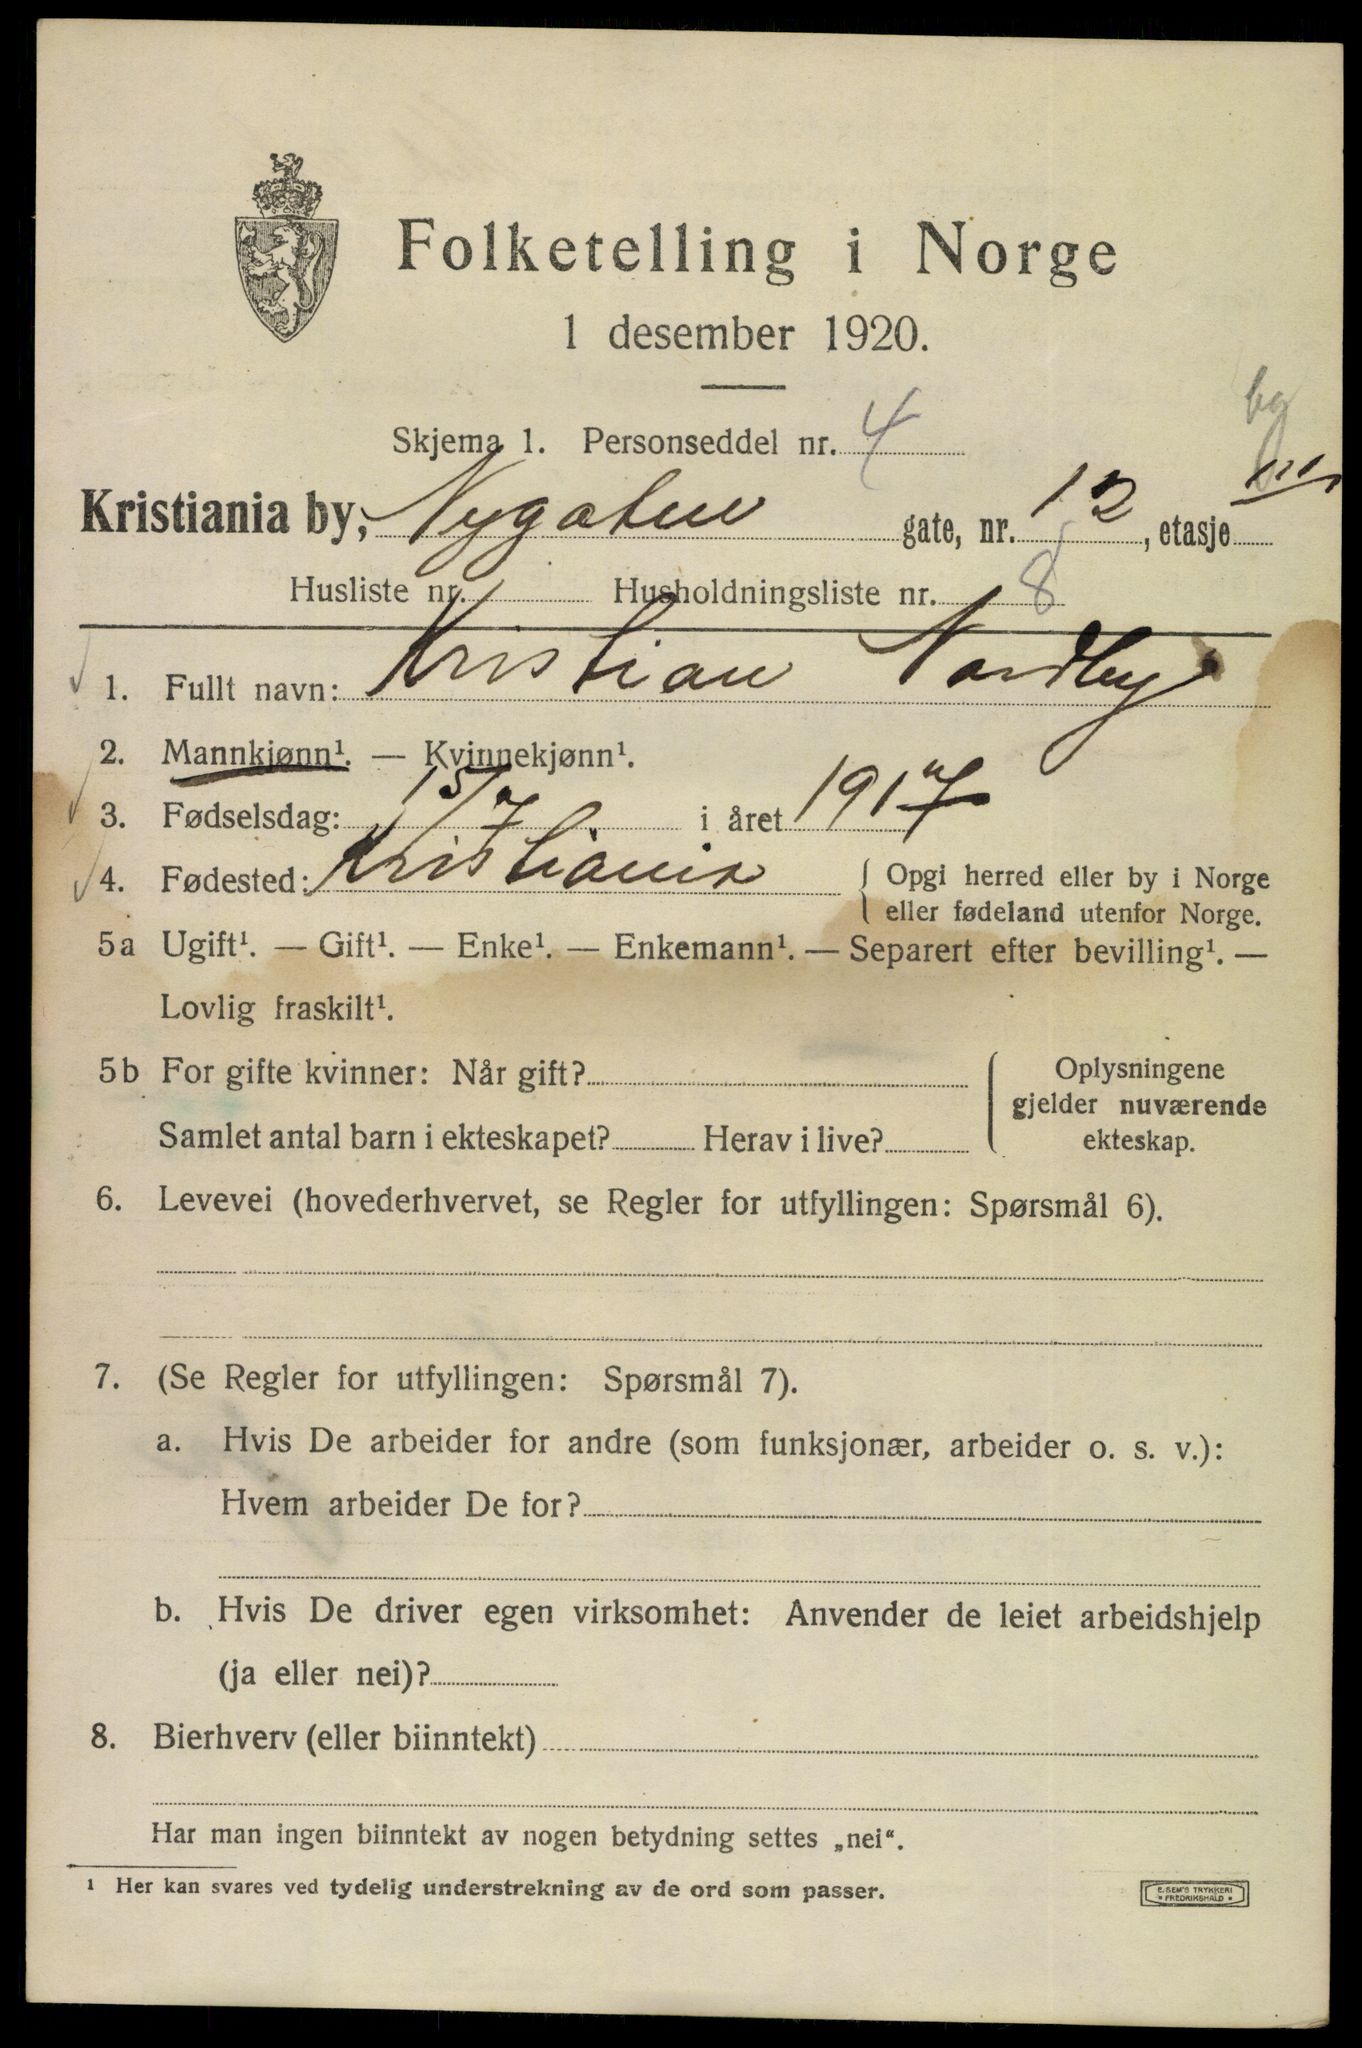 Folketelling i Norge
1 desember 1920.
Skjema 1. Personseddel nr. 4
bg
Kristiania by, Nygaten gate, nr. 12, etasje III
Husliste nr. Husholdningsliste nr. 8
1. Fullt navn: Kristian Nordby
2. Mannkjønn¹. — Kvinnekjønn¹.
3. Fødselsdag: 15/7 i året 1917
4. Fødested: Kristiania
Opgi herred eller by i Norge
eller fødeland utenfor Norge.
5a Ugift¹. — Gift¹. — Enke¹. — Enkemann¹. — Separert efter bevilling¹. —
Lovlig fraskilt¹.
5b For gifte kvinner: Når gift?
Samlet antal barn i ekteskapet? Herav i live?
Oplysningene
gjelder nuværende
ekteskap.
6. Levevei (hovederhvervet, se Regler for utfyllingen: Spørsmål 6).
7. (Se Regler for utfyllingen: Spørsmål 7).
a. Hvis De arbeider for andre (som funksjonær, arbeider o. s. v.):
Hvem arbeider De for?
b. Hvis De driver egen virksomhet: Anvender de leiet arbeidshjelp
(ja eller nei)?
8. Bierhverv (eller biinntekt)
Har man ingen biinntekt av nogen betydning settes „nei“.
¹ Her kan svares ved tydelig understrekning av de ord som passer.
E. SEM'S TRYKKERI
FREDRIKSHALD